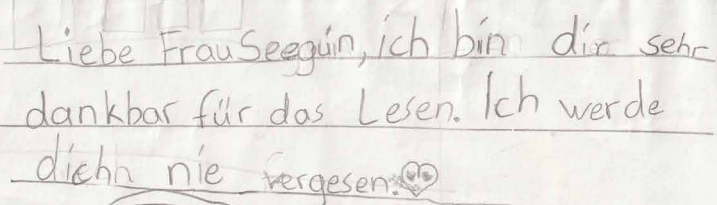 Liebe Frau Seeguin, ich bin dir sehr
dankbar für das Lesen. Ich werde
diehn nie vergesen.